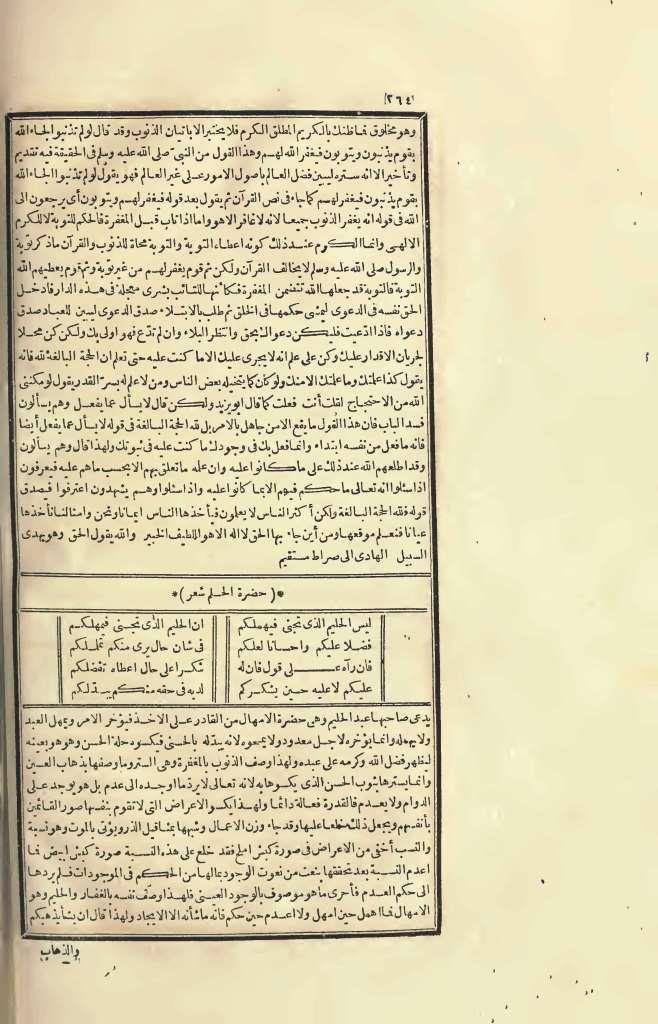 (٢٦٤)
وهو مخلوق فما ظنك بالكريم المطلق الكرم فلا يختبر الا باتيان الذنوب وقد قال لو لم تذنبوا لجاء الله
بقوم يذنبون ويتوبون فيغفر الله لهم وهذا القول من النبي صلى الله عليه وسلم في الحقيقة فيه تقديم
وتأخير الا انه ستره ليبين فضل العالم باصول الامور على غير العالم فهو يقول لو لم تذنبوا لجاء الله
بقوم يذنبون فيغفر لهم كما جاء في نص القرآن ثم يقول بعد قوله فيغفر لهم ويتوبون أي يرجعون الى
الله في قوله انه يغفر الذنوب جميعا لانه لا غافر الا هو واما اذا تاب قبل المغفرة فالحكم للتوبة لا للكرم
الالهى وانما الكرم عند ذلك كونه اعطاء التوبة والتوبة محاة للذنوب والقرآن ما ذكر توبة
والرسول صلى الله عليه وسلم لا يخالف القرآن ولكن ثم قوم يغفر لهم من غير توبة وثم قوم يعطيهم الله
التوبة فالتوبة قد جعلها الله تتضمن المغفرة فكأنها للتائب بشرى معجلة في هذه الدار فادخل
الحق نفسه في الدعوى ليمشى حكمها في الخلق ثم طلب بالابتلاء صدق الدعوى ليبين للعباد صدق
دعواه فاذا ادّعيت فليكن دعواك بحق وانتظر البلاء وان لم تدّع فهو اولى بك ولكن كن محلا
لجريان الاقدار عليك وكن على علم انه لا يجرى عليك الا ما كنت عليه حتى تعلم ان الحجة البالغة لله فانه
يقول كذا علمتك وما علمتك الا منك ولو كان كما يتخيله بعض الناس ومن لا علم له بسرّ القدر يقول لو مكننى
الله من الاحتجاج لقلت أنت فعلت كما قال ابو يزيد ولكن قال لا يسأل عما يفعل وهم يسألون
فسد الباب فان هذا القول ما يقع الا من جاهل بالامر بل لله الحجة البالغة في قوله لا يسأل عما يفعل أيضا
فانه ما فعل من نفسه ابتداء وانما فعل بك في وجودك ما كنت عليه في ثبوتك ولهذا قال وهم يسألون
وقد اطلعهم الله عند ذلك على ما كانوا عليه وان علمه ما تعلق بهم الا بحسب ما هم عليه فيعرفون
اذا سئلوا انه تعالى ما حكم فيهم الا بما كانوا عليه واذا سئلوا وهم يشهدون اعترفوا فيصدق
قوله فلله الحجة البالغة ولكن أكثر الناس لا يعلمون فيأخذها الناس ايمانا ونحن وامثالنا نأخذها
عيانا فنعلم موقعها ومن أين جاء بها الحق لا اله الا هو اللطيف الخبير والله يقول الحق وهو يهدى
السبيل الهادى الى صراط مستقيم
* (حضرة الحلم شعر) *
ليس الحليم الذى تجنى فيهملكم ان الحليم الذى تجنى فيمهلكم
فضلا عليكم واحسانا لعلكم في شان حال يرى منكم تململكم
فان رآه على قول فان له شكرا على حال اعطاه تفضلكم
عليكم لا عليه حين يشكركم لديه في حقه منكم يبدّلكم
يدعى صاحبها عبد الحليم وهى حضرة الامهال من القادر على الاخذ فيؤخر الامر ويمهل العبد
ولا يهمله وانما يؤخره لاجل معدود ولا يمحوه لانه يبدّله بالحسنى فيكسوه حلة الحسن وهو هو بعينه
ليظهر فضل الله وكرمه على عبده ولهذا وصف الذنوب بالمغفرة وهى الستر وما وصفها بذهاب العين
وانما يسترها بثوب الحسن الذى يكسوها به لانه تعالى لا يردّ ما اوجده الى عدم بل هو يوجد على
الدوام ولا يعدم فالقدرة فعالة دائما ولهذا يكسو الاعراض التى لا تقوم بنفسها صور القائمين
بأنفسهم ويجعل ذلك خلعا عليها وقد جاء وزن الاعمال وشبهها بمثاقيل الذر ويؤتى بالموت وهو نسبة
والنسب أخفى من الاعراض في صورة كبش املح فقد خلع على هذه النسبة صورة كبش ابيض فما
اعدم النسبة بعد تحققها بنعت من نعوت الوجود بما لها من الحكم في الموجودات فلم يردها
الى حكم العدم فأحرى ما هو موصوف بالوجود العينى فلهذا وصف نفسه بالغفار والحليم وهو
الامهال فما اهمل حين امهل ولا اعدم حين حكم فانه ما شأنه الا الايجاد ولهذا قال ان يشأ يذهبكم
والذهاب